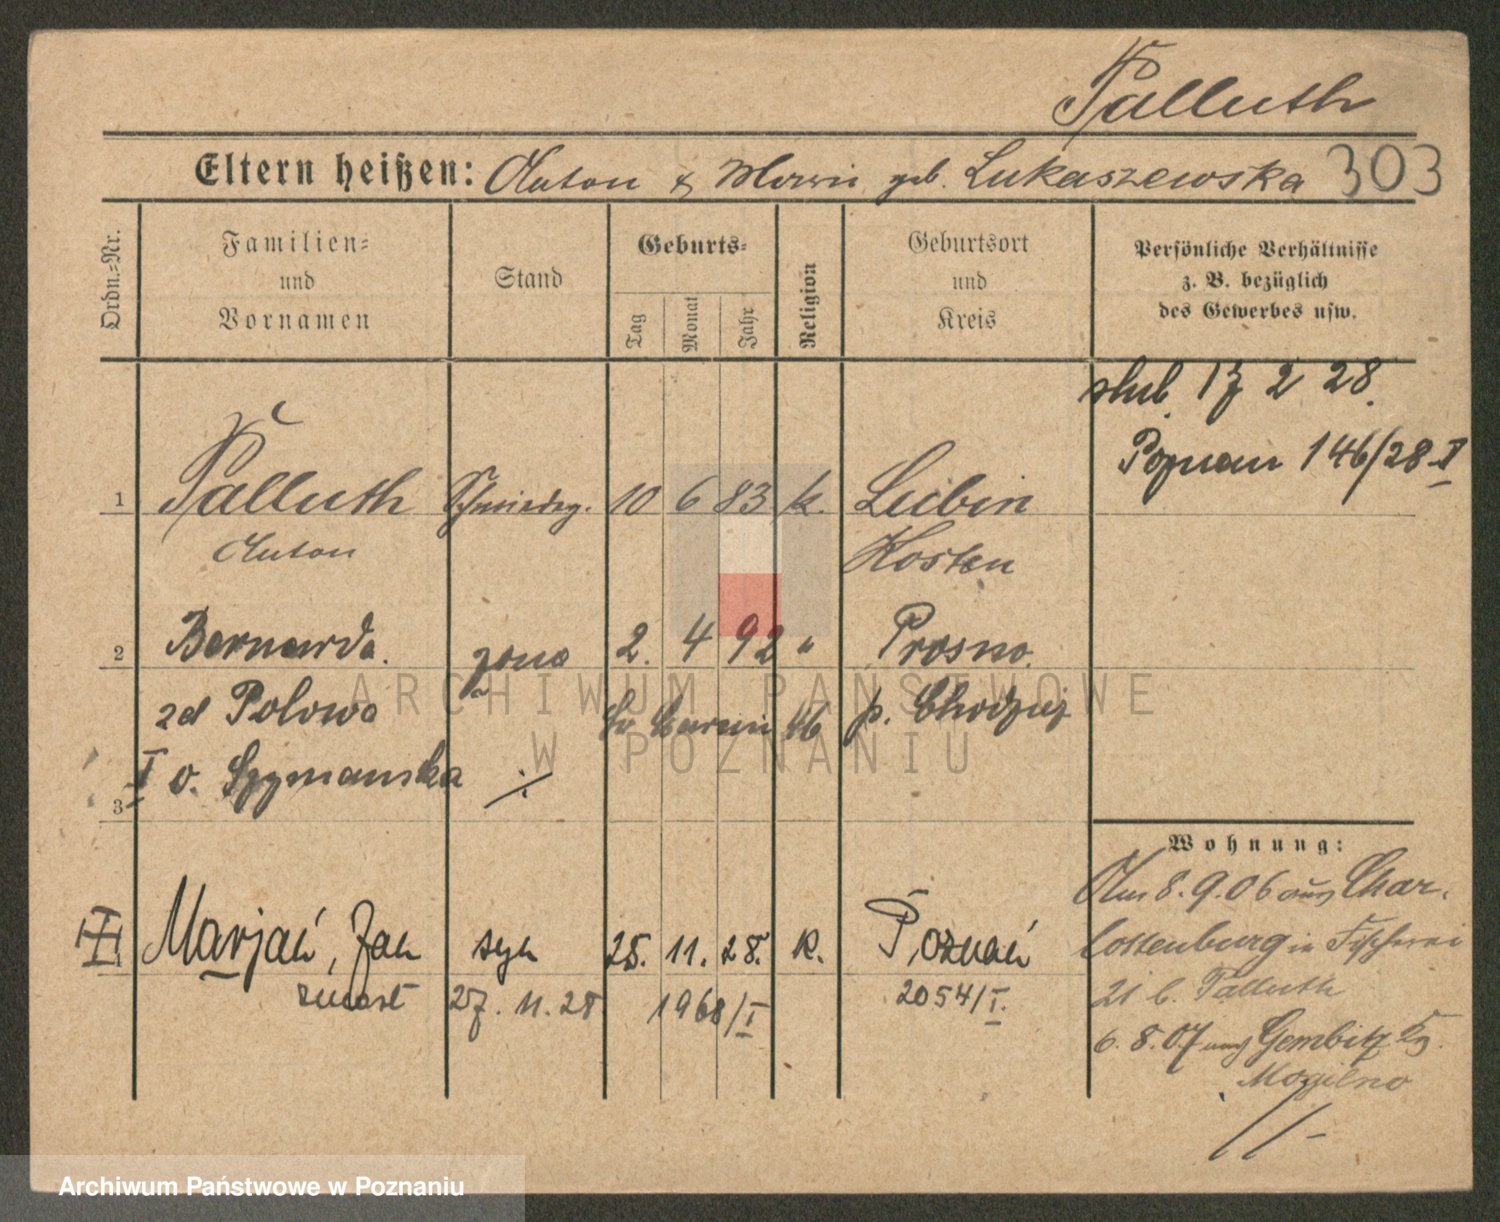 Palluth
Eltern heißen: Anton & Maria geb. Lukaszewska 303
Ordn.=Nr.
Familien=
und
Vornamen
Stand
Geburts=
Tag
Monat
Jahr
Religion
Geburtsort
und
Kreis
Persönliche Verhältnisse
z. B. bezüglich
des Gewerbes usw.
ślub. 17 2 28.
Poznań 146/28 II
1 Palluth Schmiedeg. 10 6 83 k. Lubin
Anton Kosten
2 Bernarda. żona 2. 4 92 " Prosno.
zd Polowa 46 p. Chodzież
I v. Szymanska ./.
3
Wohnung:
Am 8. 9. 06 aus Char-
lottenburg in Fischerei
21 b. Palluth
6. 8. 07 nach Gembitz Krs.
Mogilno
III Marjań, Jan syn 25. 11. 28. k. Poznań
zmarł 27. 11. 28 1968/I 2054/I.
ARCHIWUM PAŃSTWOWE
W POZNANIU
Archiwum Państwowe w Poznaniu